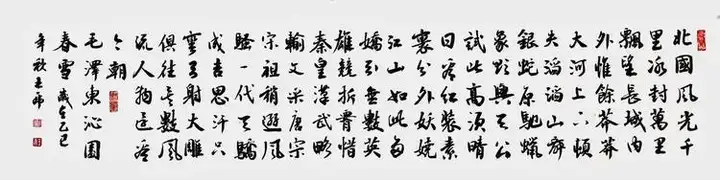 北國風光千
里冰封萬里
飄望長城內
外惟餘莽莽
大河上下頓
失滔滔山舞
銀蛇原馳蠟
象欲與天公
試比高須晴
日看紅裝素
裹分外妖嬈
江山如此多
嬌引無數英
雄競折腰惜
秦皇漢武略
輸文采唐宗
宋祖稍遜風
騷一代天驕
成吉思汗只
彎弓射大雕
俱往矣數風
流人物還看
今朝
毛澤東沁園
春雪歲在己巳
年秋